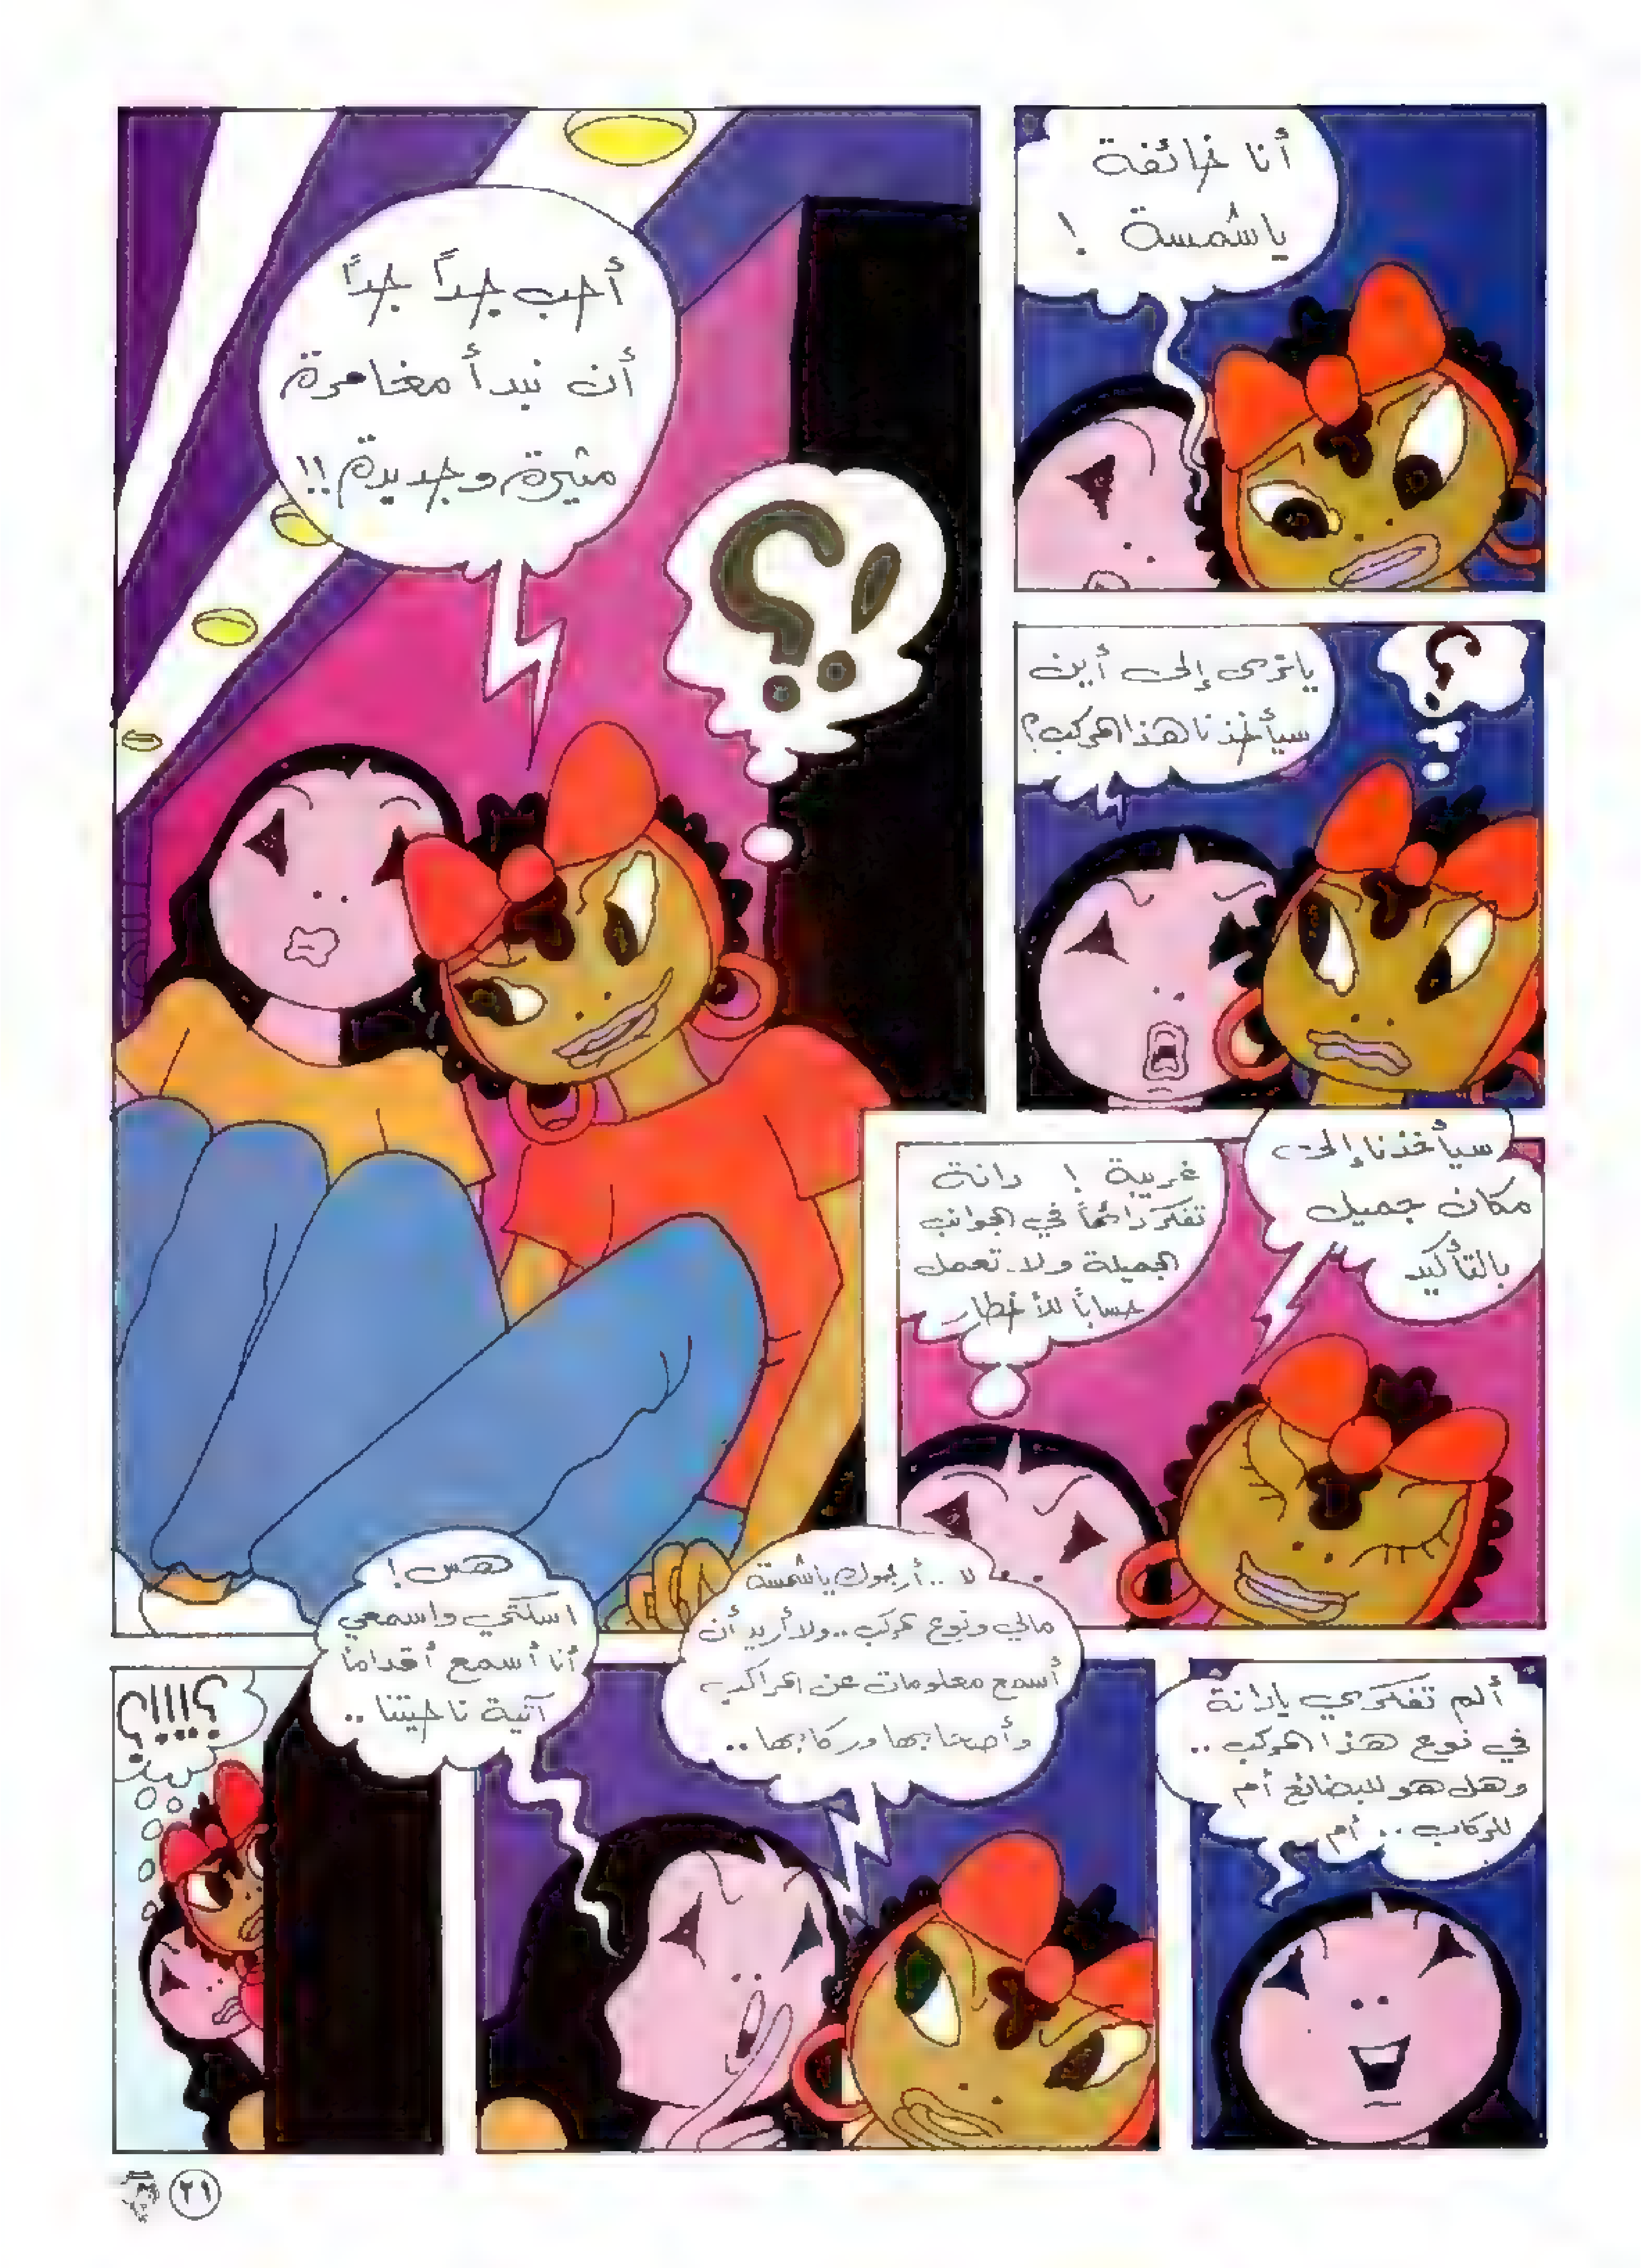 أنا خائفة
ياشمسة !
أحب جداً جداً
أن نبدأ مغامرة
مثيرة وجديدة !!
؟!
ياترى إلى أين
سيأخذنا هذا المركب؟
؟
سيأخذنا إلى
مكان جميل
بالتأكيد
غريبة ! دانة
تفكر دائماً في الجوانب
الجميلة ولا تعمل
حساباً للأخطار
ألم تفكري يادانة
في نوع هذا المركب ..
وهل هو للبضائع أم
للركاب .. أم
لا .. أرجوك ياشمسة
مالي ونوع المركب .. ولا أريد أن
أسمع معلومات عن المراكب
وأصحابها وركابها ..
هس !
اسكتي واسمعي
أنا أسمع أقداماً
آتية ناحيتنا ..
؟!!!؟
٢١